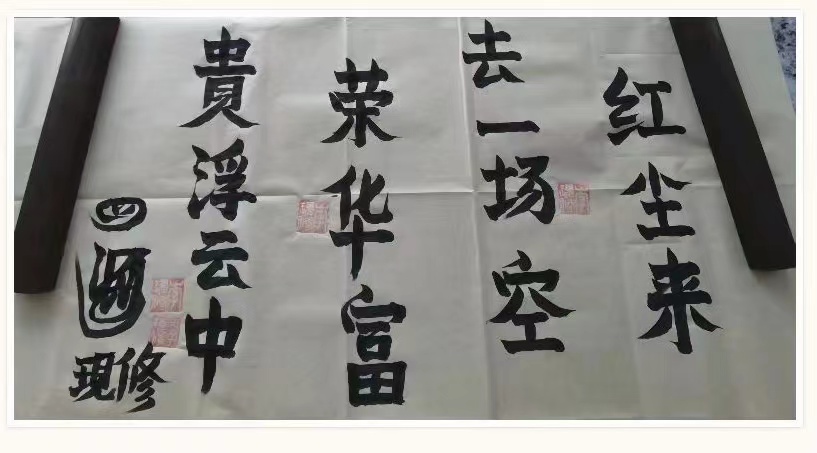 红尘来
去一场空
荣华富
貴浮云中
四
修
现